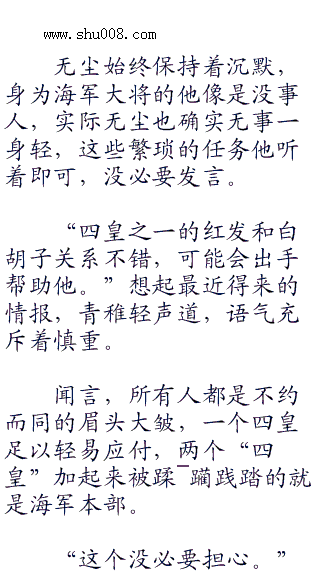 www.shu008.com
无尘始终保持着沉默，
身为海军大将的他像是没事
人，实际无尘也确实无事一
身轻，这些繁琐的任务他听
着即可，没必要发言。
“四皇之一的红发和白
胡子关系不错，可能会出手
帮助他。”想起最近得来的
情报，青稚轻声道，语气充
斥着慎重。
闻言，所有人都是不约
而同的眉头大皱，一个四皇
足以轻易应付，两个“四
皇”加起来被蹂¯躏践踏的就
是海军本部。
“这个没必要担心。”